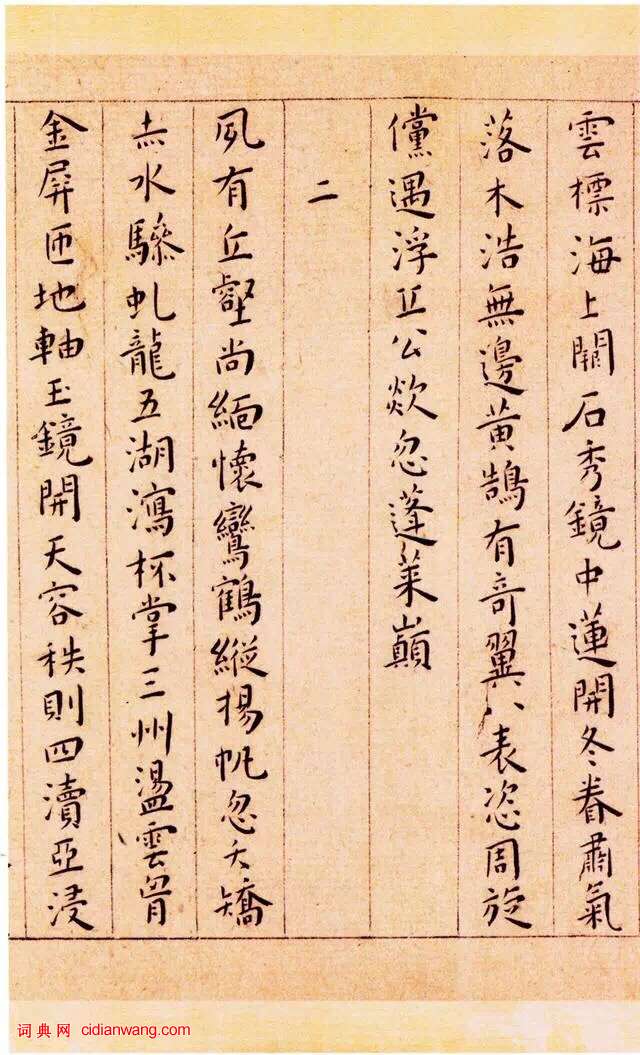 雲標海上關石秀鏡中蓮開冬眷肅氣
落木浩無邊黃鵠有奇翼八表恣周旋
儻遇浮丘公欻忽蓬萊巔
二
夙有丘壑尚緬懷鸞鶴縱揚帆忽夭矯
赤水驂虬龍五湖瀉杯掌三州盪雲胷
金屏匝地軸玉鏡開天容秩則四瀆亞浸
词典网 cidianwang.com